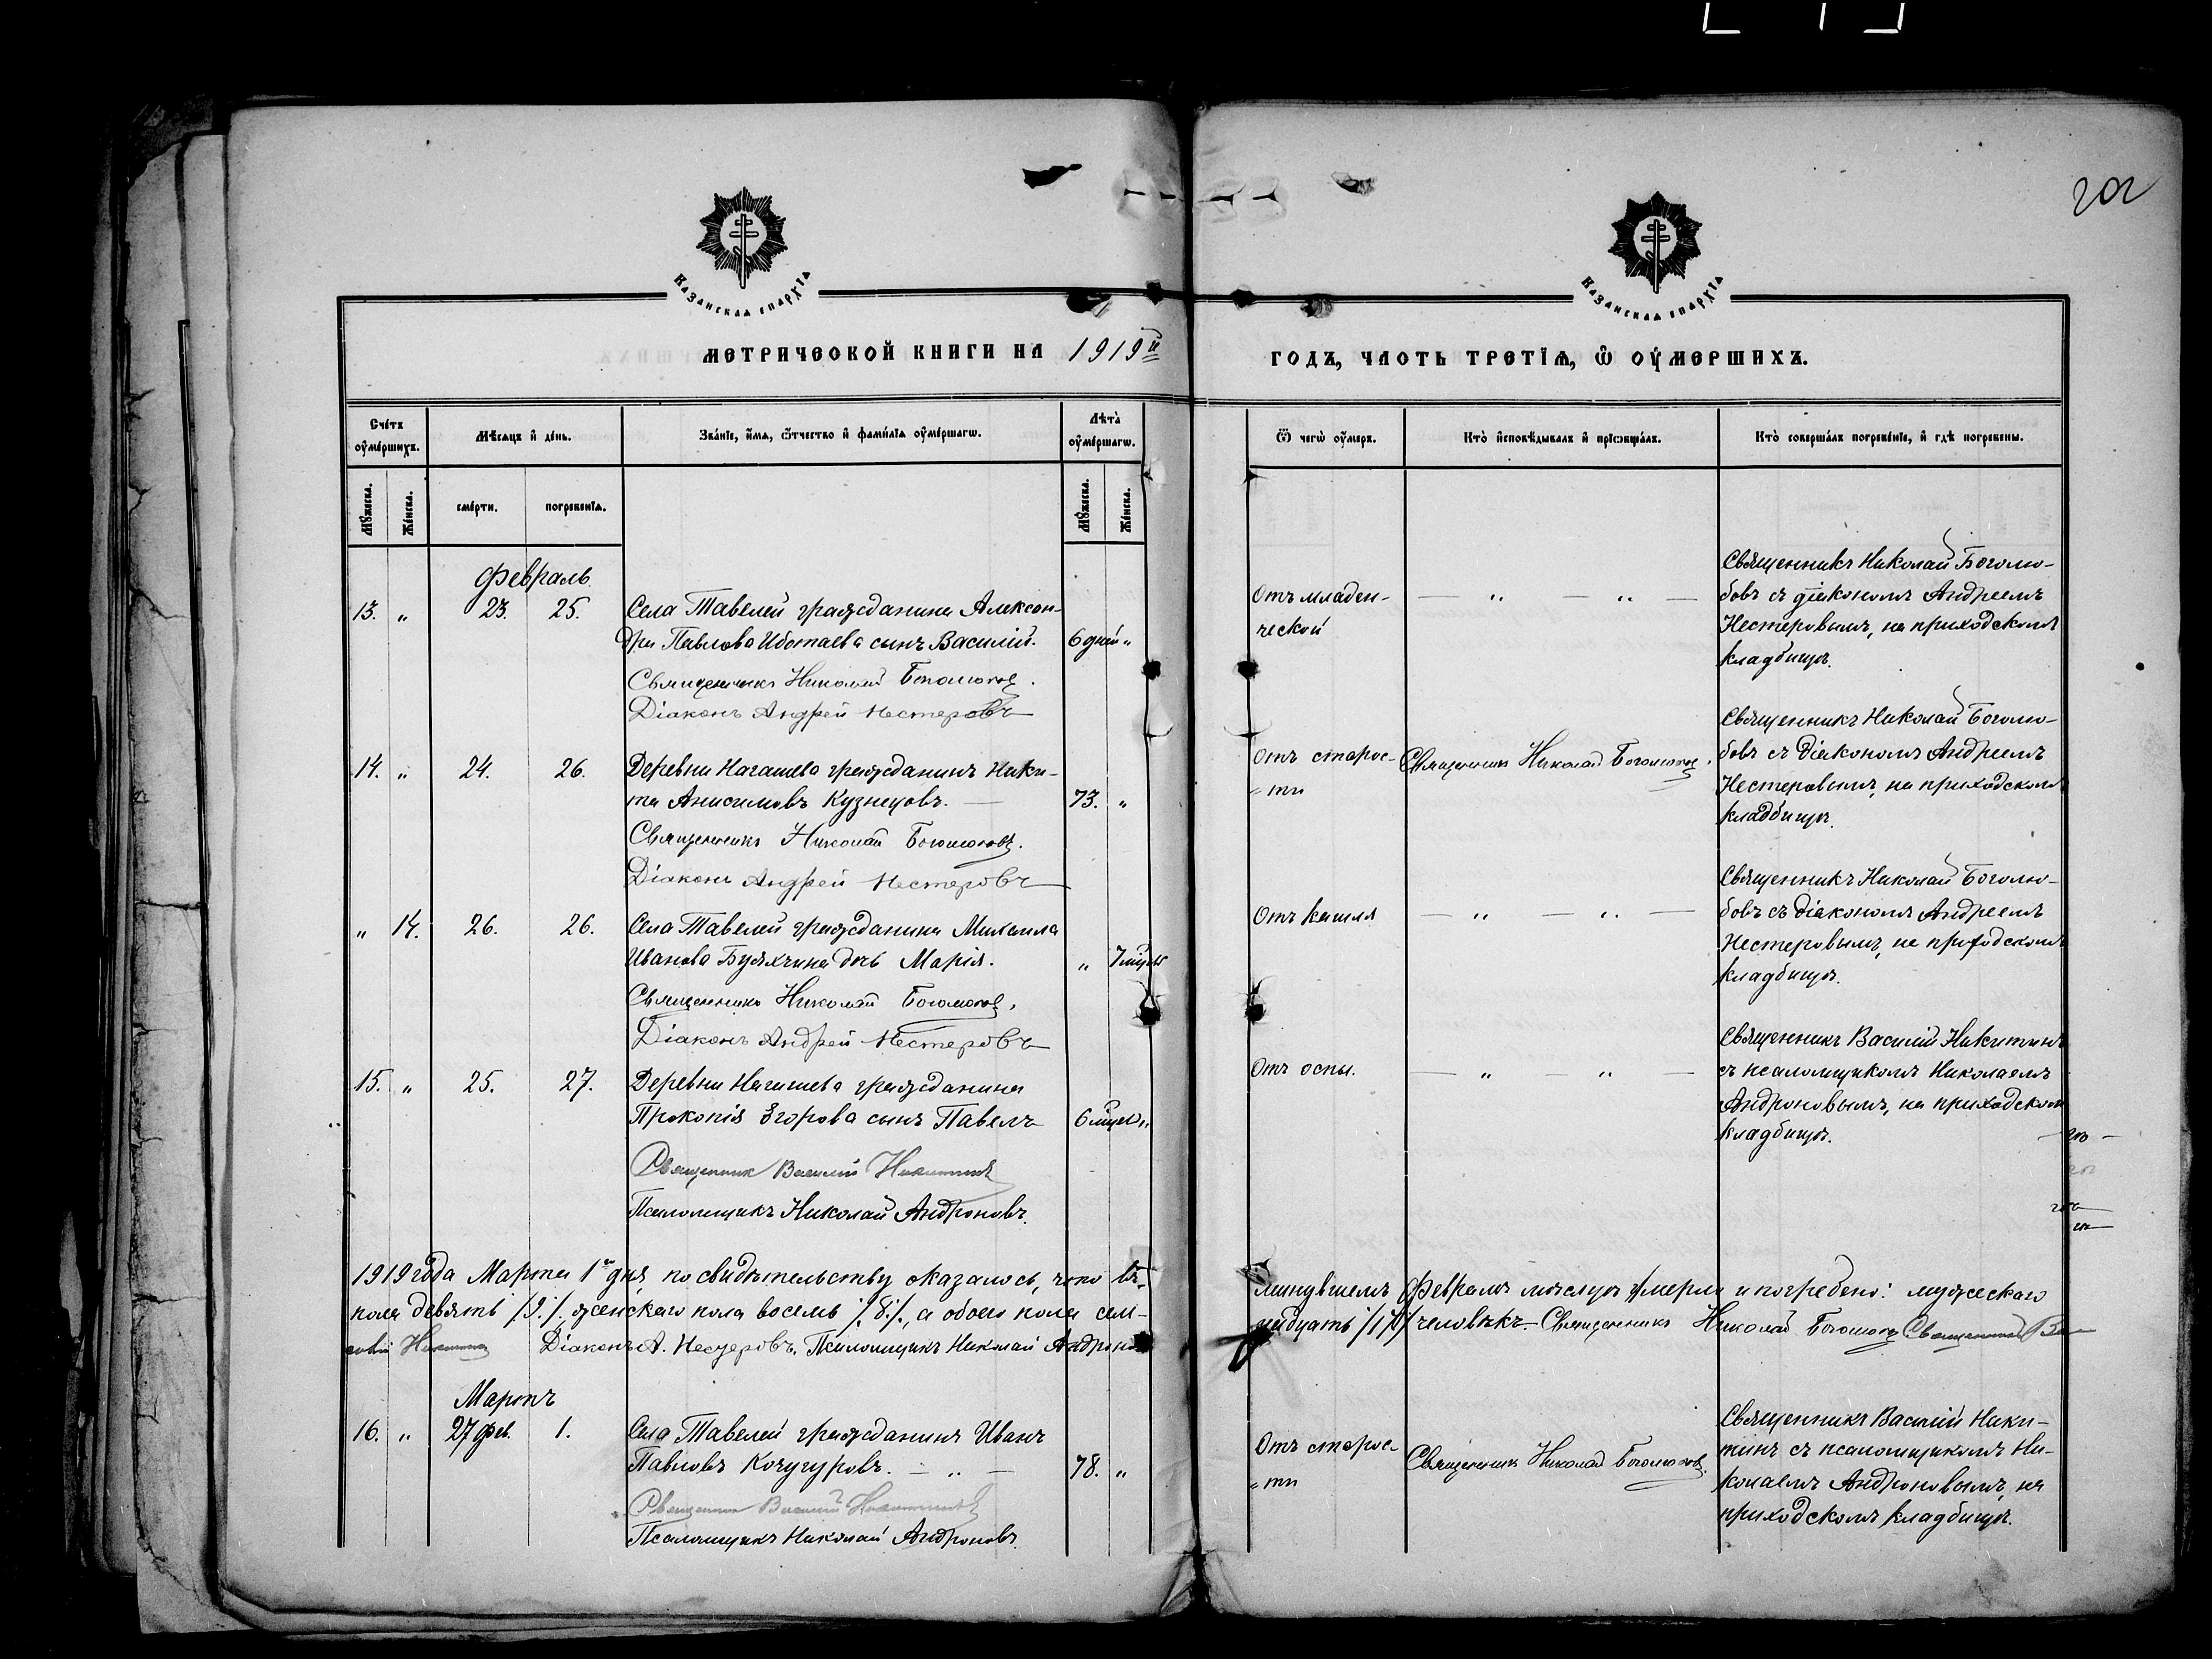 202
Казанская епархїа
Казанская епархїа
МЕТРИЧЕСКОЙ КНИГИ НА 1919й
ГОДЪ, ЧАСТЬ ТРЕТЇѦ, Ѿ ОУМЕРШИХЪ.
Счетъ оумершихъ.
Мѣсяцъ и день.
Званїе, имя, отчество и фамилїа оумершагѡ.
Лѣта оумершагѡ.
Ѿ чегѡ оумеръ.
Кто исповѣдывалъ и прїѡбщалъ.
Кто совершалъ погребенїе, и гдѣ погребены.
Мужеска.
Женска.
смерти.
погребенїя.
Мужеска.
Женска.
Февраль
13. „ 23. 25. Села Тавелей гражданина Алексан-
дра Павлова сынъ Василій. 6 дней „
Священникъ Николай Боголюбовъ.
Діаконъ Андрей Нестеровъ
Отъ младен-
ческой
— „ — „ —
Священникъ Николай Боголю-
бовъ съ діакономъ Андреемъ
Нестеровымъ, на приходскомъ
кладбищѣ.
14. „ 24. 26. Деревни гражданинъ Ники-
та Анисимовъ Кузнецовъ. — 73. „
Священникъ Николай Боголюбовъ.
Діаконъ Андрей Нестеровъ
Отъ старос-
ти
Священникъ Николай Боголюбовъ.
Священникъ Николай Боголю-
бовъ съ діакономъ Андреемъ
Нестеровымъ, на приходскомъ
кладбищѣ.
„ 14. 26. 26. Села Тавелей гражданина Михаила
Иванова дчь Марія. „ 7 мцевъ
Священникъ Николай Боголюбовъ.
Діаконъ Андрей Нестеровъ
Отъ кашля
— „ — „ —
Священникъ Николай Боголю-
бовъ съ діакономъ Андреемъ
Нестеровымъ, на приходскомъ
кладбищѣ.
15. „ 25. 27. Деревни гражданина
Прокопія Егорова сынъ Павелъ 6 мцевъ „
Священникъ Василій Никитинъ
Псаломщикъ Николай Андроновъ.
Отъ оспы.
— „ — „ —
Священникъ Василій Никитинъ
съ псаломщикомъ Николаемъ
Андроновымъ, на приходскомъ
кладбищѣ.
1919 года Марта 1го дня, по свидѣтельству оказалось, что въ
минувшемъ Февралѣ мѣсяцѣ умерло и погребено: мужескаго
пола девять /9./, женскаго пола восемь /8/, а обоего пола сем-
надцать /17/ человѣкъ.— Священникъ Николай Боголюбовъ Священникъ Ва-
силій Никитинъ Діаконъ А. Нестеровъ. Псаломщикъ Николай Андроновъ
Мартъ
16. „ 27 фев. 1. Села Тавелей гражданинъ Иванъ
Павловъ Кочугуровъ. — „ — 78. „
Священникъ Василій Никитинъ
Псаломщикъ Николай Андроновъ.
Отъ старос-
ти
Священникъ Николай Боголюбовъ.
Священникъ Василій Ники-
тинъ съ псаломщикомъ Ни-
колаемъ Андроновымъ, на
приходскомъ кладбищѣ.